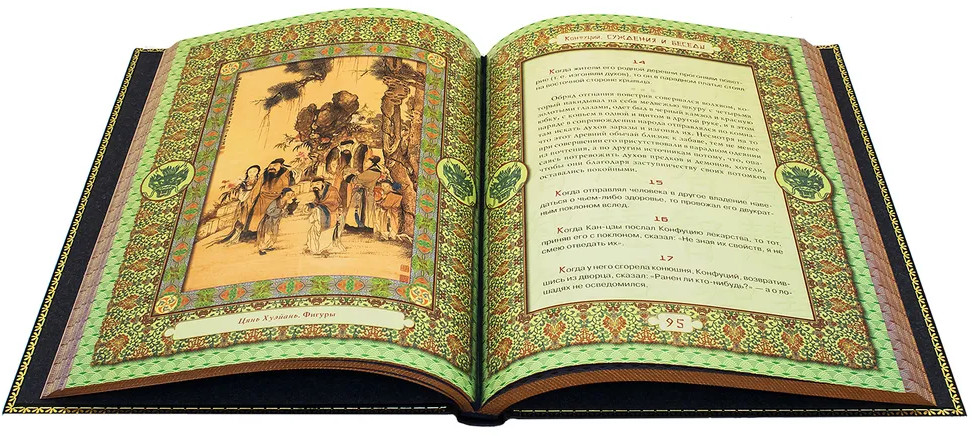 Цянь Хуэйань. Фигуры
Конфуций. СУЖДЕНИЯ И БЕСЕДЫ
14
Когда жители его родной деревни прогоняли повет-
рие (т. е. изгоняли духов), то он в парадном платье стоял
на восточной стороне крыльца.
Обряд отгнания поветрия совершался вожаком, ко-
торый накидывал на себя медвежью шкуру с четырьмя
золотыми глазами, одет был в черный камзол и красную
юбку, с копьем в одной и щитом в другой руке, и в этом
наряде в сопровождении народа отправлялся по комна-
там искать духов заразы и изгонял их. Несмотря на то
что этот древний обычай близок к забаве, тем не менее
при совершении его присутствовали в парадном одеянии
из почтения, а по другим источникам потому, что, опа-
саясь потревожить духов предков и демонов, хотели,
чтобы они благодаря заступничеству своих потомков
оставались покойными.
15
Когда отправлял человека в другое владение наве-
даться о чьем-либо здоровье, то провожал его двукрат-
ным поклоном вслед.
16
Когда Кан-цзы послал Конфуцию лекарства, то тот,
приняв его с поклоном, сказал: «Не зная их свойств, я не
смею отведать их».
17
Когда у него сгорела конюшня, Конфуций, возвратив-
шись из дворца, сказал: «Ранен ли кто-нибудь?» — а о ло-
шадях не осведомился.
95